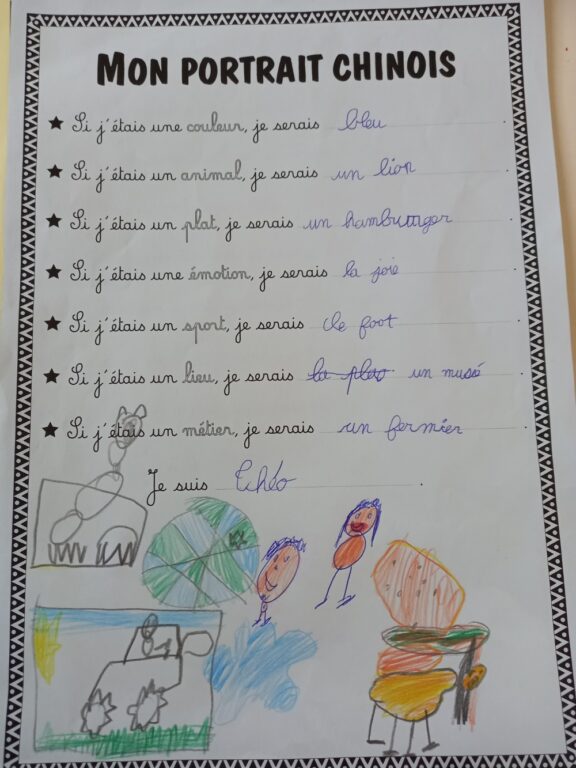 MON PORTRAIT CHINOIS
★ Si j'étais une couleur, je serais bleu.
★ Si j'étais un animal, je serais un lion.
★ Si j'étais un plat, je serais un hamburger.
★ Si j'étais une émotion, je serais la joie.
★ Si j'étais un sport, je serais le foot.
★ Si j'étais un lieu, je serais un musé.
★ Si j'étais un métier, je serais un fermier.
Je suis Théo.